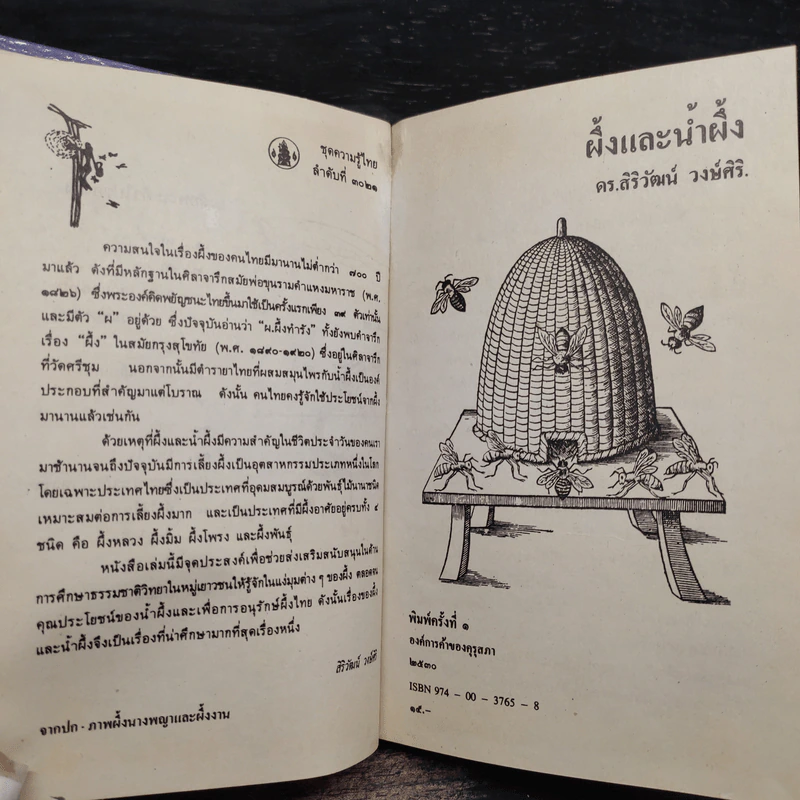 ชุดความรู้ไทย
ลำดับที่ ๓๐๒๑
ความสนใจในเรื่องผึ้งของคนไทยมีมานานไม่ต่ำกว่า ๗๐๐ ปี
มาแล้ว ดังที่มีหลักฐานในศิลาจารึกสมัยพ่อขุนรามคำแหงมหาราช (พ.ศ.
๑๘๒๖) ซึ่งพระองค์คิดพยัญชนะไทยขึ้นมาใช้เป็นครั้งแรกเพียง ๓๙ ตัวเท่านั้น
และมีตัว "ผ" อยู่ด้วย ซึ่งปัจจุบันอ่านว่า "ผ.ผึ้งทำรัง" ทั้งยังพบคำจารึก
เรื่อง "ผึ้ง" ในสมัยกรุงสุโขทัย (พ.ศ. ๑๘๙๐-๑๙๒๐) ซึ่งอยู่ในศิลาจารึก
ที่วัดศรีชุม นอกจากนั้นมีตำรายาไทยที่ผสมสมุนไพรกับน้ำผึ้งเป็นองค์
ประกอบที่สำคัญมาแต่โบราณ ดังนั้น คนไทยคงรู้จักใช้ประโยชน์จากผึ้ง
มานานแล้วเช่นกัน
ด้วยเหตุที่ผึ้งและน้ำผึ้งมีความสำคัญในชีวิตประจำวันของคนเรา
มาช้านานจนถึงปัจจุบันมีการเลี้ยงผึ้งเป็นอุตสาหกรรมประเภทหนึ่งในโลก
โดยเฉพาะประเทศไทยซึ่งเป็นประเทศที่อุดมสมบูรณ์ด้วยพันธุ์ไม้นานาชนิด
เหมาะสมต่อการเลี้ยงผึ้งมาก และเป็นประเทศที่มีผึ้งอาศัยอยู่ครบทั้ง ๔
ชนิด คือ ผึ้งหลวง ผึ้งมิ้ม ผึ้งโพรง และผึ้งพันธุ์
หนังสือเล่มนี้มีจุดประสงค์เพื่อช่วยส่งเสริมสนับสนุนในด้าน
การศึกษาธรรมชาติวิทยาในหมู่เยาวชนให้รู้จักในแง่มุมต่าง ๆ ของผึ้ง ตลอดจน
คุณประโยชน์ของน้ำผึ้งและเพื่อการอนุรักษ์ผึ้งไทย ดังนั้นเรื่องของผึ้ง
และน้ำผึ้งจึงเป็นเรื่องที่น่าศึกษามากที่สุดเรื่องหนึ่ง
สิริวัฒน์ วงษ์ศิริ
จากปก - ภาพผึ้งนางพญาและผึ้งงาน
ผึ้งและน้ำผึ้ง
ดร.สิริวัฒน์ วงษ์ศิริ.
พิมพ์ครั้งที่ ๑
องค์การค้าของคุรุสภา
๒๕๓๐
ISBN 974 - 00 - 3765 - 8
๑๕.-